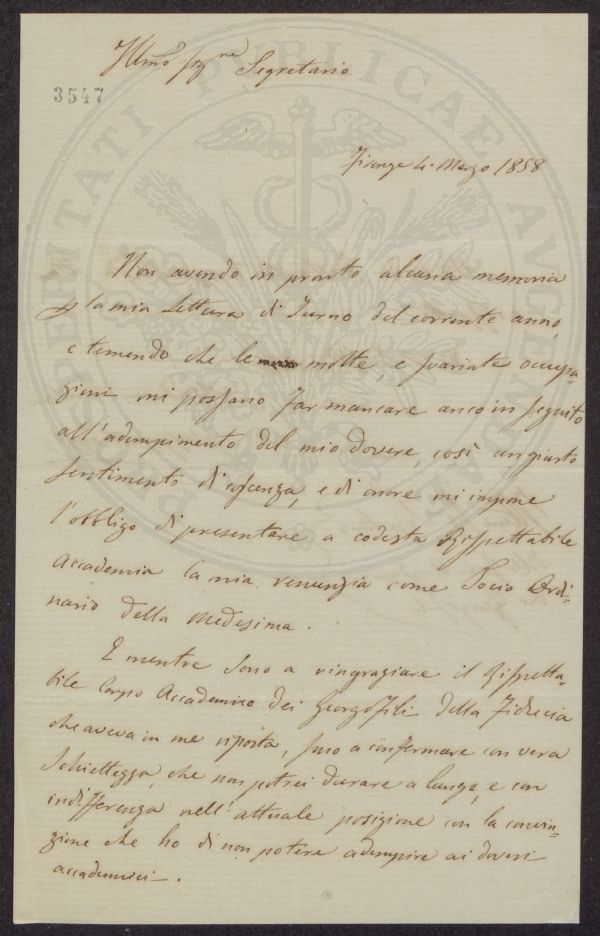 Illmo Sigre Segretario
3547
PROSPERITATI PUBLICAE AUGENDAE
Firenze 4. Marzo 1858
Non avendo in pronto alcuna memoria
p la mia Lettura di Turno del corrente anno,
e temendo che le molte, e svariate occupa-
zioni mi possano far mancare anco in seguito
all'adempimento del mio dovere, così un giusto
sentimento di coscienza, e di onore mi impone
l'obbligo di presentare a codesta Rispettabile
Accademia la mia renunzia come Socio Ordi-
nario della Medesima.
E mentre sono a ringraziare il Rispetta-
bile Corpo Accademico dei Georgofili della Fiducia
che aveva in me riposta, sono a confermare con vera
Schiettezza, che non potrei durare a lungo, e con
indifferenza nell'attuale posizione con la convin-
zione che ho di non potere adempire ai doveri
accademici.